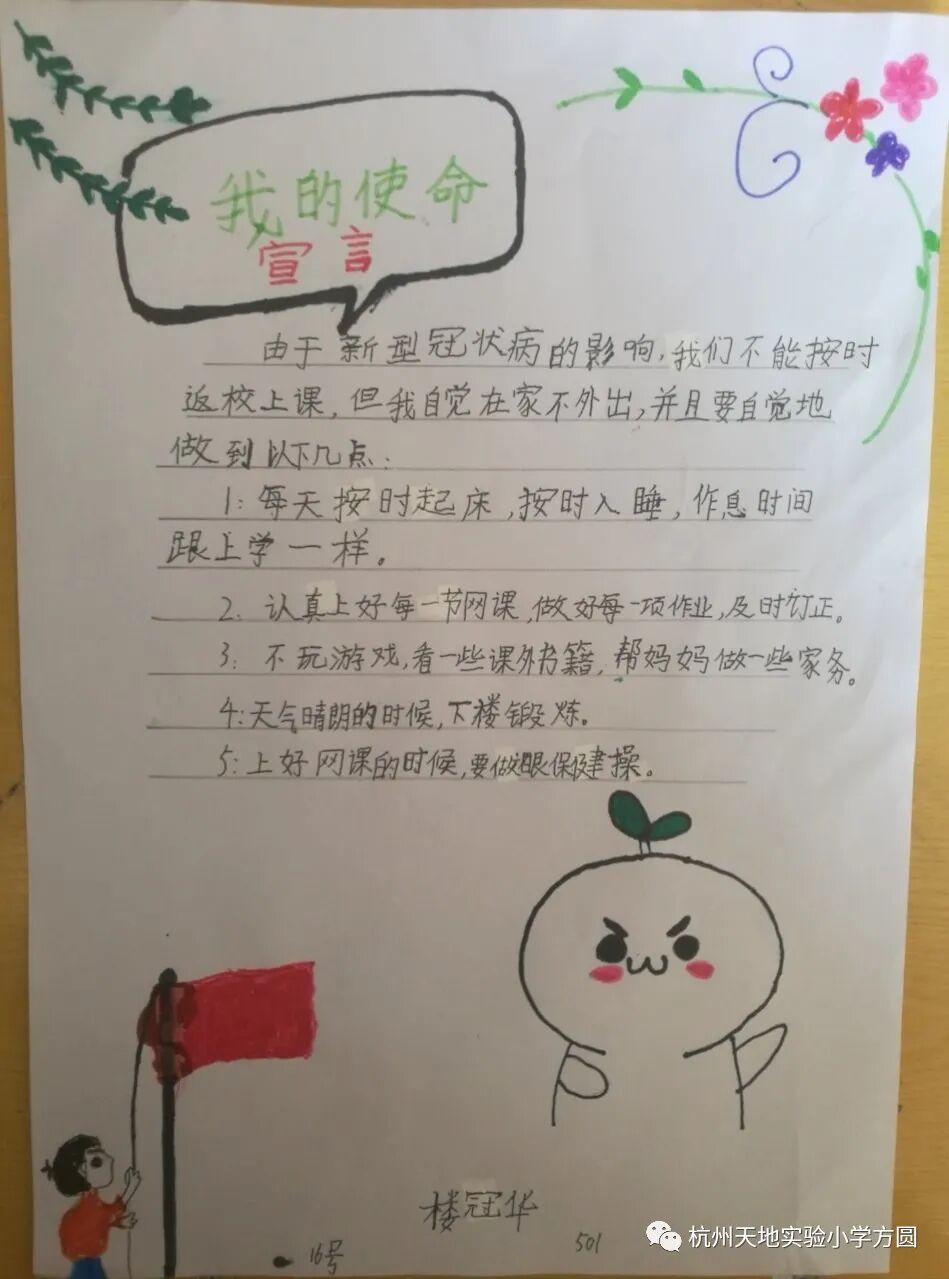 我的使命
宣言
由于新型冠状病的影响,我们不能按时
返校上课,但我自觉在家不外出,并且要自觉地
做到以下几点:
1:每天按时起床,按时入睡,作息时间
跟上学一样。
2:认真上好每一节网课,做好每一项作业,及时订正。
3:不玩游戏,看一些课外书籍,帮妈妈做一些家务。
4:天气晴朗的时候,下楼锻炼。
5:上好网课的时候,要做眼保健操。
楼冠华
16号
501
杭州天地实验小学方圆